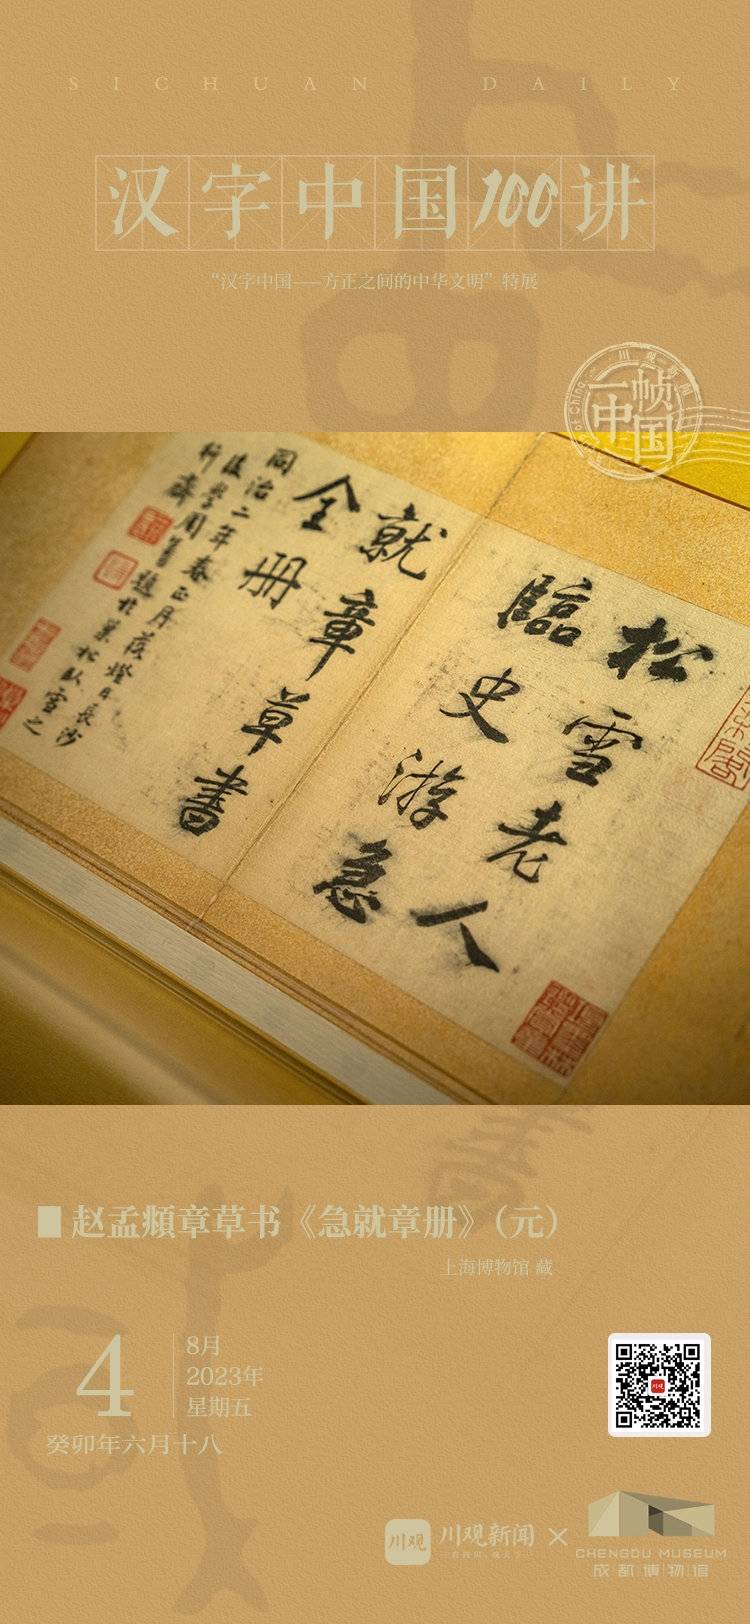 SICHUAN DAILY
汉字中国100讲
“汉字中国——方正之间的中华文明”特展
川观新闻
一帧
中国
松雪老人
臨史游急
就章草書
全册
同治二年春正月
■ 赵孟頫章草书《急就章册》（元）
上海博物馆 藏
4
8月
2023年
星期五
癸卯年六月十八
川观
川观新闻
×
CHENGDU MUSEUM
成都博物馆